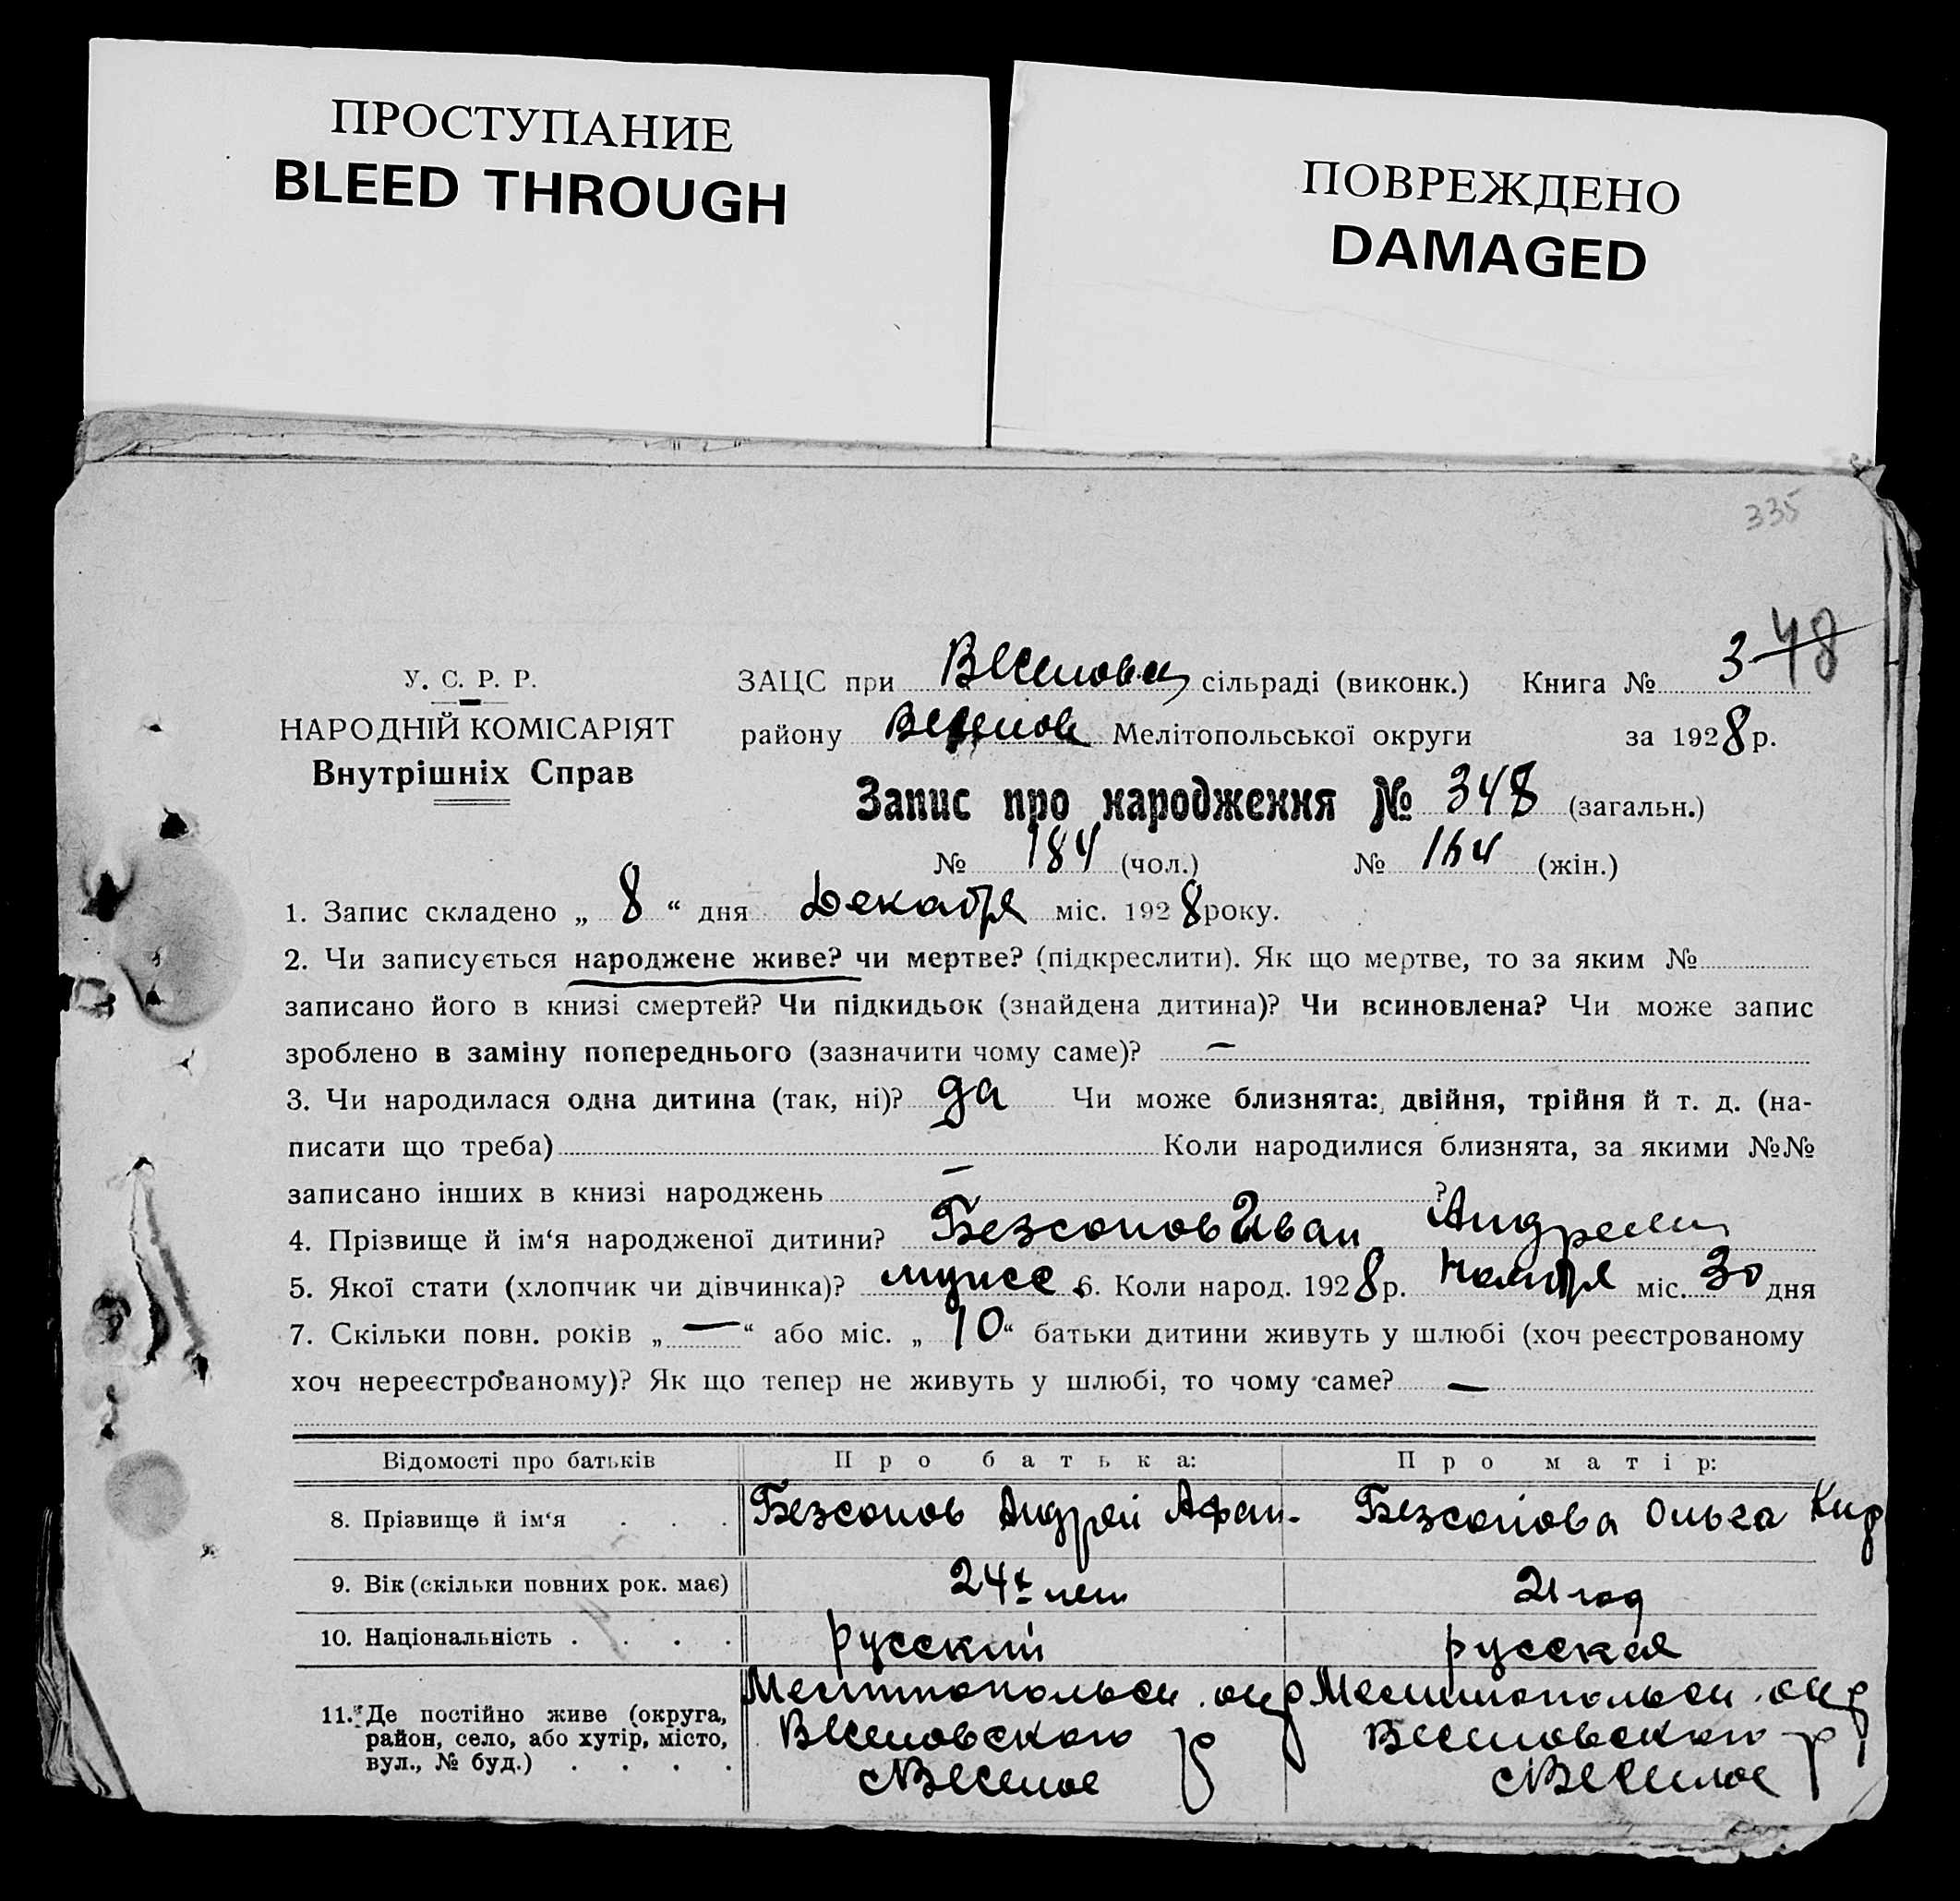 ПРОСТУПАНИЕ
BLEED THROUGH
ПОВРЕЖДЕНО
DAMAGED
335
У. С. Р. Р.
НАРОДНІЙ КОМІСАРІЯТ
Внутрішніх Справ
48
ЗАЦС при Веселовск сільраді (виконк.) Книга № 3
району Веселов Мелітопольської округи за 1928 р.
Запис про народження № 348 (загальн.)
№ 184 (чол.) № 164 (жін.)
1. Запис складено „ 8 “ дня Декабря міс. 1928 року.
2. Чи записується народжене живе? чи мертве? (підкреслити). Як що мертве, то за яким №
записано його в книзі смертей? Чи підкидьок (знайдена дитина)? Чи всиновлена? Чи може запис
зроблено в заміну попереднього (зазначити чому саме)? —
3. Чи народилася одна дитина (так, ні)? да Чи може близнята: двійня, трійня й т. д. (на-
писати що треба) Коли народилися близнята, за якими №№
записано інших в книзі народжень — ?
4. Прізвище й ім‘я народженої дитини? Безсонов Иван Андреев
5. Якої стати (хлопчик чи дівчинка)? мужск 6. Коли народ. 1928 р. Ноября міс. 30 дня
7. Скільки повн. років „ — “ або міс. „ 10 “ батьки дитини живуть у шлюбі (хоч реєстрованому
хоч нереєстрованому)? Як що тепер не живуть у шлюбі, то чому саме? —
Відомості про батьків Про батька: Про матір:
8. Прізвище й ім‘я . . . Безсонов Андрей Афан. Безсонова Ольга Кир
9. Вік (скільки повних рок. має) 24 лет 21 год
10. Національність . . . . русский русская
11. Де постійно живе (округа, район, село, або хутір, місто, вул., № буд.) . . . .
Мелитопольск. окр
Веселовского р
с Веселое
Мелитопольск. окр
Веселовского р
с Веселое